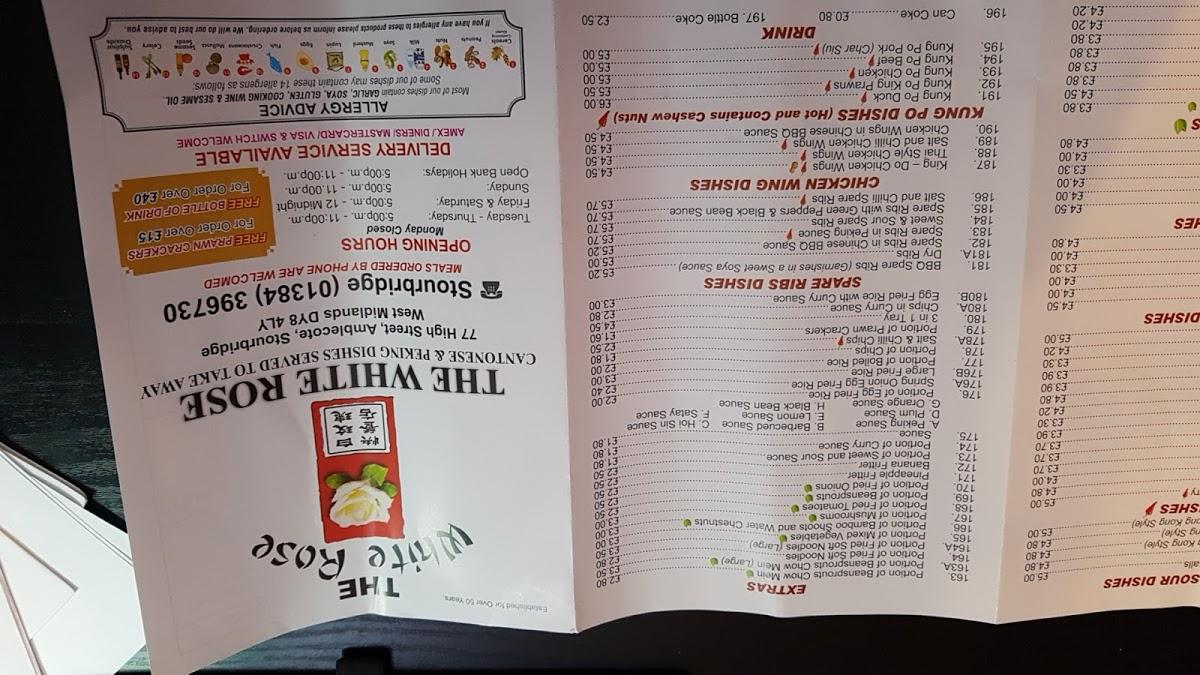 SOUR DISHES £5.00
£4.80
g Kong Style) £4.80
ng Style)
Kong Style) £5.00
SHES
£5.00
£4.80
£4.50
£3.70
£3.70
£3.90
£3.30
£4.20
£3.90
£3.90
£3.30
£4.20
£5.00
DISHES
£4.50
£4.00
£3.30
£4.00
£4.80
HES
£4.50
£4.00
£3.30
£4.00
£4.80
£3.80
£4.50
£3.80
£3.80
£4.20
£4.20
EXTRAS
163. Portion of Beansprouts Chow Mein £2.80
163A. Portion of Beansprouts Chow Mein (Large) £3.50
164. Portion of Fried Soft Noodles £2.80
164A. Portion of Fried Soft Noodles (Large) £3.50
165. Portion of Mixed Vegetables £3.00
166. Portion of Bamboo Shoots and Water Chestnuts £3.00
167. Portion of Mushrooms £2.50
168. Portion of Fried Tomatoes £2.50
169. Portion of Beansprouts £2.50
170. Portion of Fried Onions £2.50
171. Pineapple Fritter £2.50
172. Banana Fritter £2.50
173. Portion of Sweet and Sour Sauce £1.80
174. Portion of Curry Sauce £1.80
175. Sauce £1.80
A. Peking Sauce B. Barbecued Sauce C. Hoi Sin Sauce
D. Plum Sauce E. Lemon Sauce F. Satay Sauce
G. Orange Sauce H. Black Bean Sauce
176. Portion of Egg Fried Rice £2.00
176A. Spring Onion Egg Fried Rice £2.40
176B. Large Fried Rice £3.00
177. Portion of Boiled Rice £1.80
178. Portion of Chips £1.80
178A. Salt & Chilli Chips £2.50
179. Portion of Prawn Crackers £1.60
180. 3 in 1 Tray £4.50
180A. Chips in Curry Sauce £2.80
180B. Egg Fried Rice with Curry Sauce £3.00
SPARE RIBS DISHES
181. BBQ Spare Ribs (Garnishes in a Sweet Soya Sauce) £5.20
181A. Dry Ribs £5.00
182. Spare Ribs in Chinese BBQ Sauce £5.20
183. Spare Ribs in Peking Sauce £5.70
184. Sweet & Sour Spare Ribs £5.70
185. Spare Ribs with Green Peppers & Black Bean Sauce £5.70
186. Salt and Chilli Spare Ribs £5.70
CHICKEN WING DISHES
187. King - Do Chicken Wings £4.50
188. Thai Style Chicken Wings £4.50
189. Salt and Chilli Chicken Wings £4.50
190. Chicken Wings in Chinese BBQ Sauce £4.50
KUNG PO DISHES (Hot and Contains Cashew Nuts)
191. Kung Po Duck £6.00
192. Kung Po King Prawns £5.50
193. Kung Po Chicken £5.00
194. Kung Po Beef £5.00
195. Kung Po Pork (Char Siu) £5.00
DRINK
196. Can Coke £0.80 197. Bottle Coke £2.50
Established for Over 50 Years.
THE
White Rose
白玫瑰
快餐店
THE WHITE ROSE
CANTONESE & PEKING DISHES SERVED TO TAKE AWAY
77 High Street, Amblecote, Stourbridge
West Midlands DY8 4LY
Stourbridge (01384) 396730
MEALS ORDERED BY PHONE ARE WELCOMED
OPENING HOURS
Monday Closed
Tuesday - Thursday: 5:00p.m. - 11:00p.m.
Friday & Saturday: 5:00p.m. - 12 Midnight
Sunday: 5:00p.m. - 11:00p.m.
Open Bank Holidays: 5:00p.m. - 11:00p.m.
FREE PRAWN CRACKERS
For Order Over £15
FREE BOTTLE OF DRINK
For Order Over £40
DELIVERY SERVICE AVAILABLE
AMEX./ DINERS/ MASTERCARD/ VISA & SWITCH WELCOME
ALLERGY ADVICE
Most of our dishes contain GARLIC, SOYA, GLUTEN, COOKING WINE & SESAME OIL
Some of our dishes may contain these 14 allergens as follows:
Cereals Peanuts Nuts Milk Soya Mustard Lupin Eggs Fish Crustaceans Molluscs Sesame Seeds Celery Sulphur Dioxide
If you have any allergies to these products please inform us before ordering. We will do our best to advise you